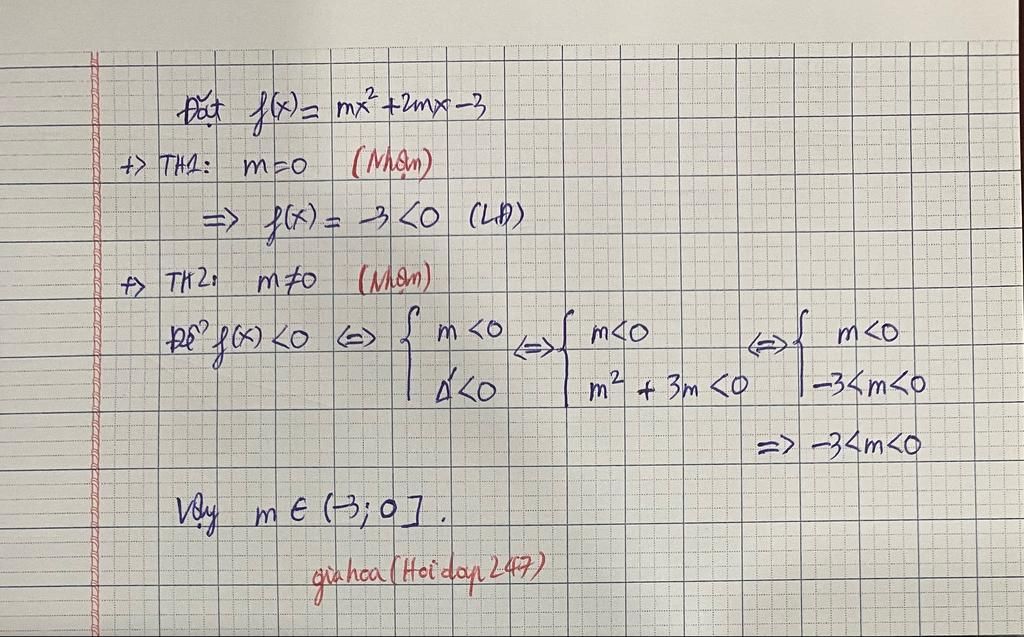 Đặt f(x) = mx² + 2mx - 3
+> TH1: m = 0 (Nhận)
=> f(x) = -3 < 0 (LĐ)
+> TH2: m ≠ 0 (Nhận)
Để f(x) < 0 <=> { m < 0 ; Δ' < 0 <=> { m < 0 ; m² + 3m < 0 <=> { m < 0 ; -3 < m < 0
=> -3 < m < 0
Vậy m ∈ (-3; 0].
giahoa (Hoidap247)